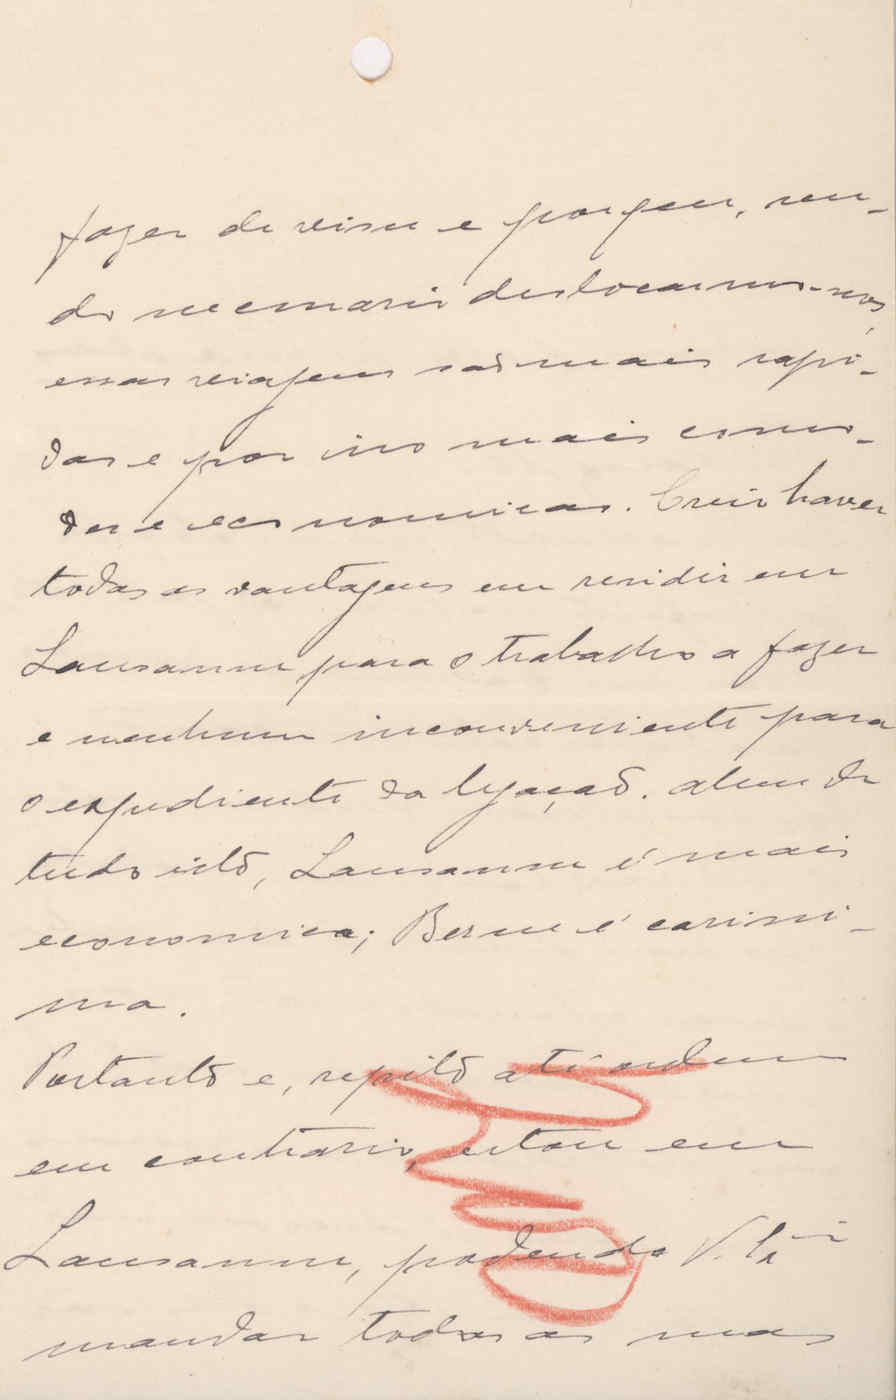 fazer de visu e porque, sen-
do necessario deslocarmo-nos,
essas viagens são mais rapi-
das e por isso mais como-
das e economicas. Creio haver
todas as vantagens em residir em
Lausanne para o trabalho a fazer
e nenhum inconveniente para
o expediente da legação. Alem de
tudo isto, Lausanne é mais
economica; Berne é carissi-
ma.
Portanto e, repito até ordem
em contrario, estou em
Lausanne, podendo V. Exª
mandar todas as suas